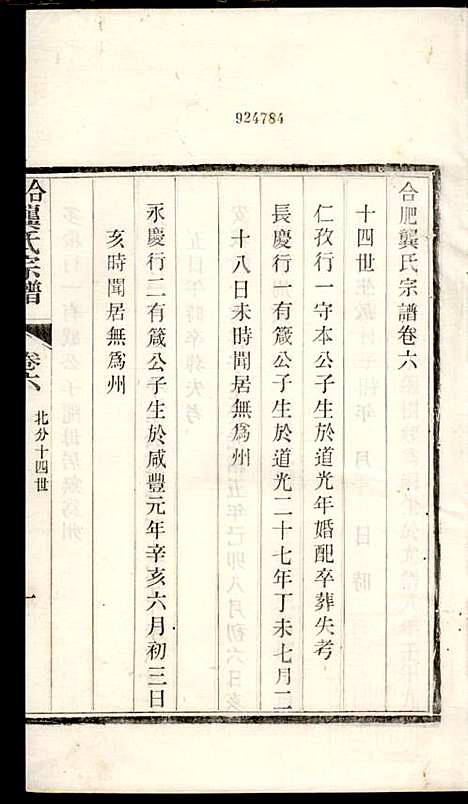 924784
合肥龔氏宗譜卷六
十四世
仁孜行一守本公子生於道光年婚配卒葬失考
長慶行一有箴公子生於道光二十七年丁未七月二
十八日未時聞居無爲州
永慶行二有箴公子生於咸豐元年辛亥六月初三日
亥時聞居無爲州
合肥龔氏宗譜
卷六
北分十四世
一